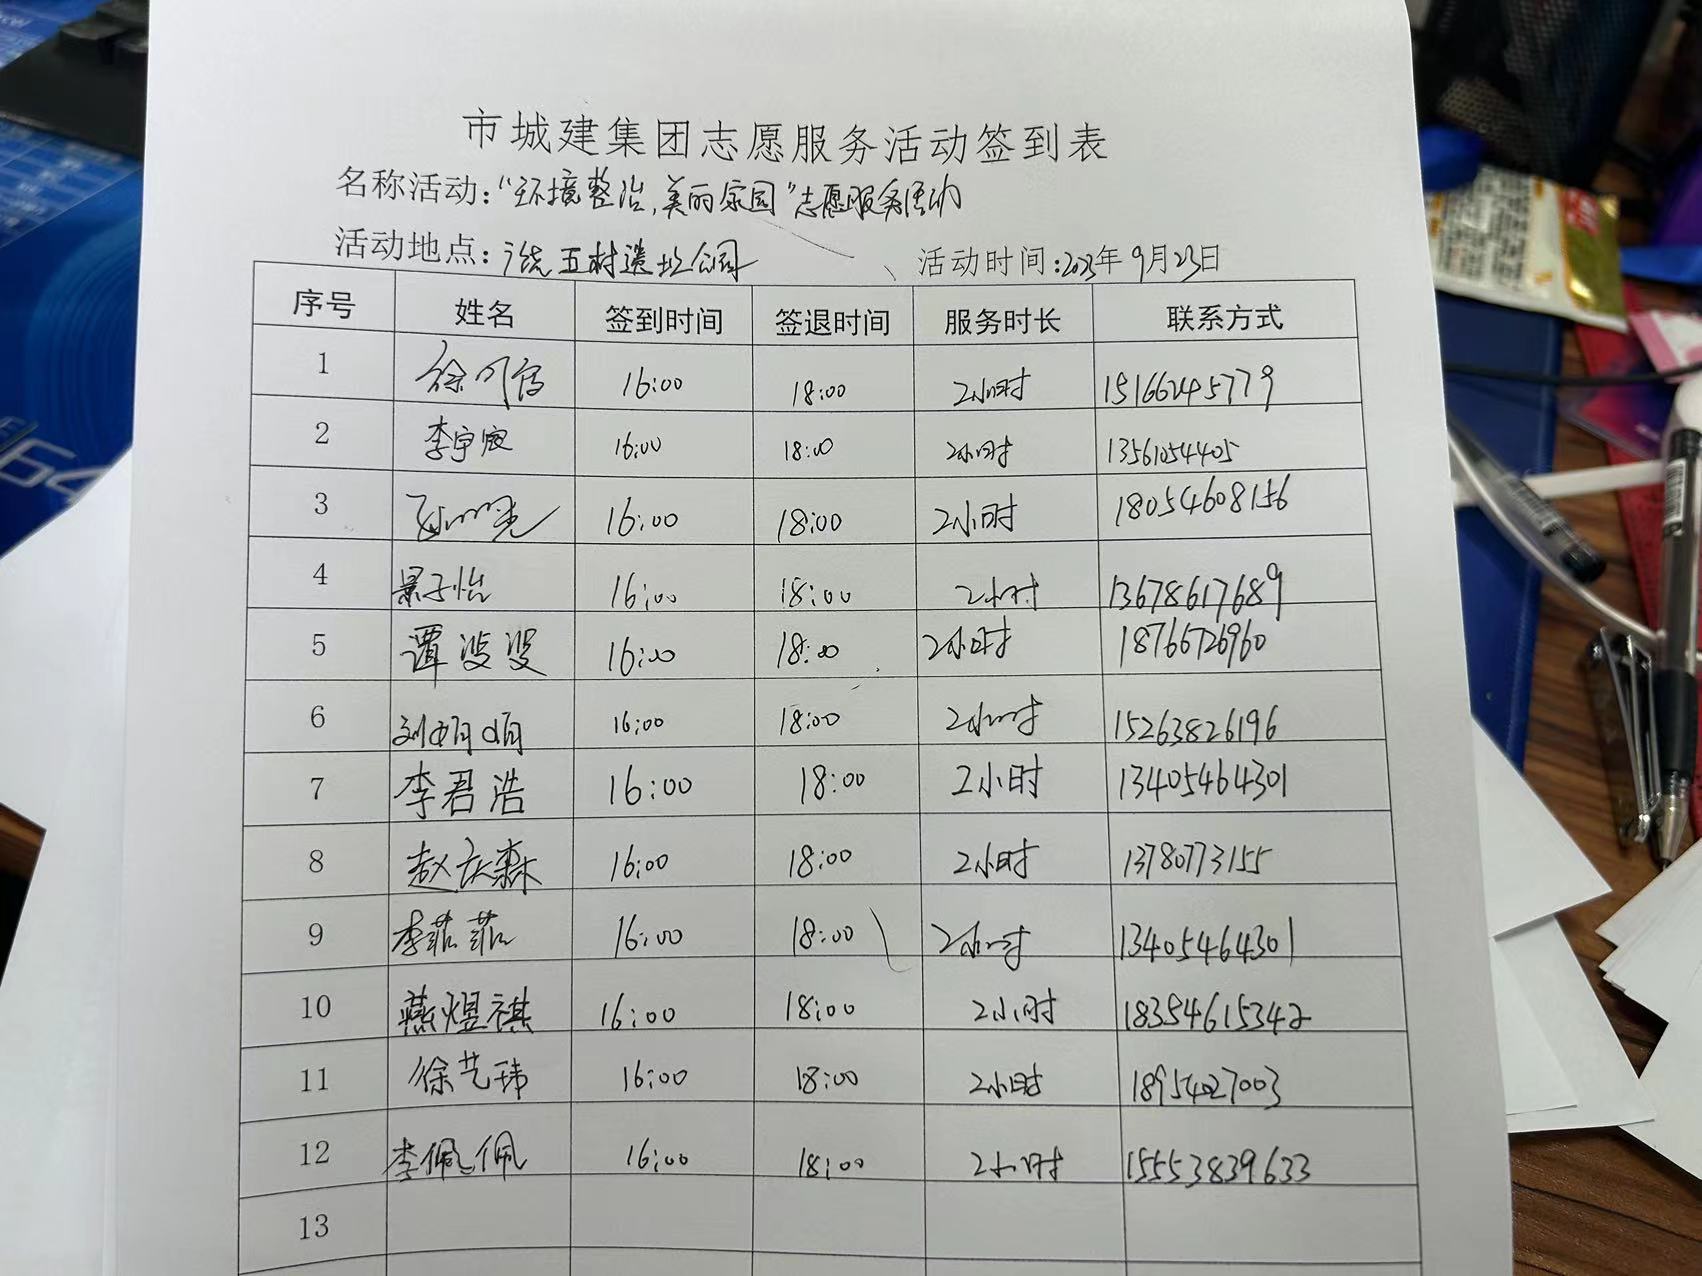 市城建集团志愿服务活动签到表
名称活动:“环境整治,美丽家园”志愿服务活动
活动地点:广饶五村遗址公园 活动时间:2023年9月23日
序号 姓名 签到时间 签退时间 服务时长 联系方式
1 16:00 18:00 2小时 15166245779
2 李宇宸 16:00 18:00 2小时 13561054405
3 16:00 18:00 2小时 18054608156
4 景子怡 16:00 18:00 2小时 13678617689
5 谭婆婆 16:00 18:00 2小时 18766726960
6 16:00 18:00 2小时 15263826196
7 李君浩 16:00 18:00 2小时 13405464301
8 赵庆森 16:00 18:00 2小时 13780773155
9 李菲菲 16:00 18:00 2小时 13405464301
10 燕煜祺 16:00 18:00 2小时 18354615342
11 徐艺玮 16:00 18:00 2小时 18954027003
12 李佩佩 16:00 18:00 2小时 15553839633
13
64